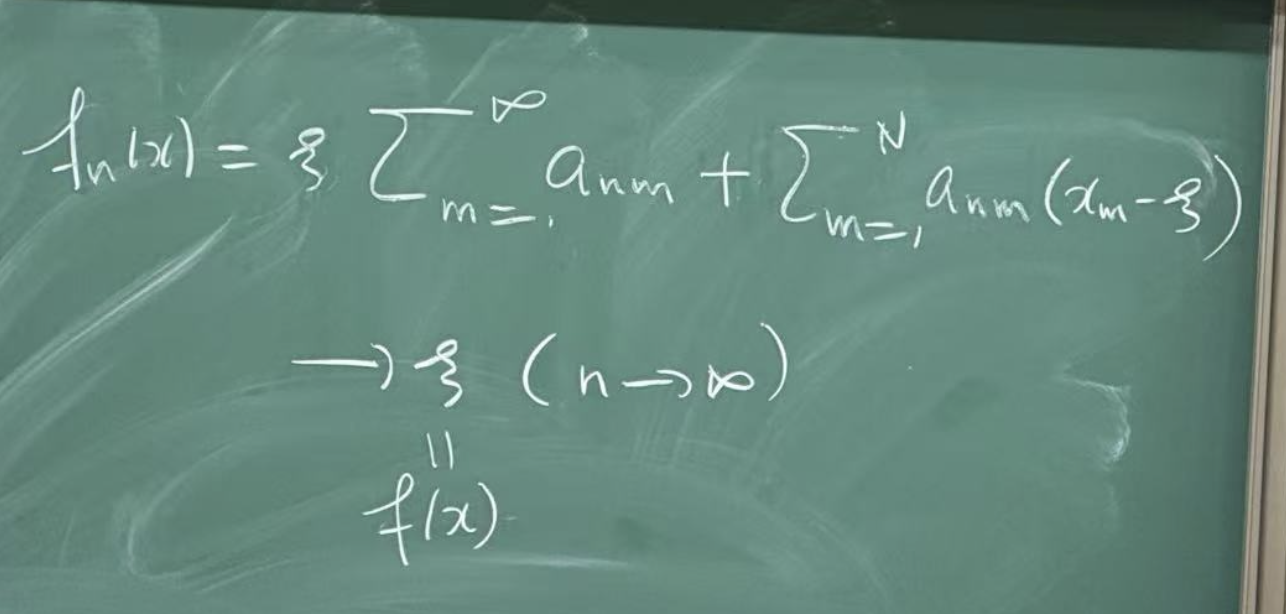 fₙ(x) = ξ ∑_{m=1}^{∞} a_{nm} + ∑_{m=1}^{N} a_{nm} (x_m - ξ)
→ ξ (n → ∞)
||
f(x)